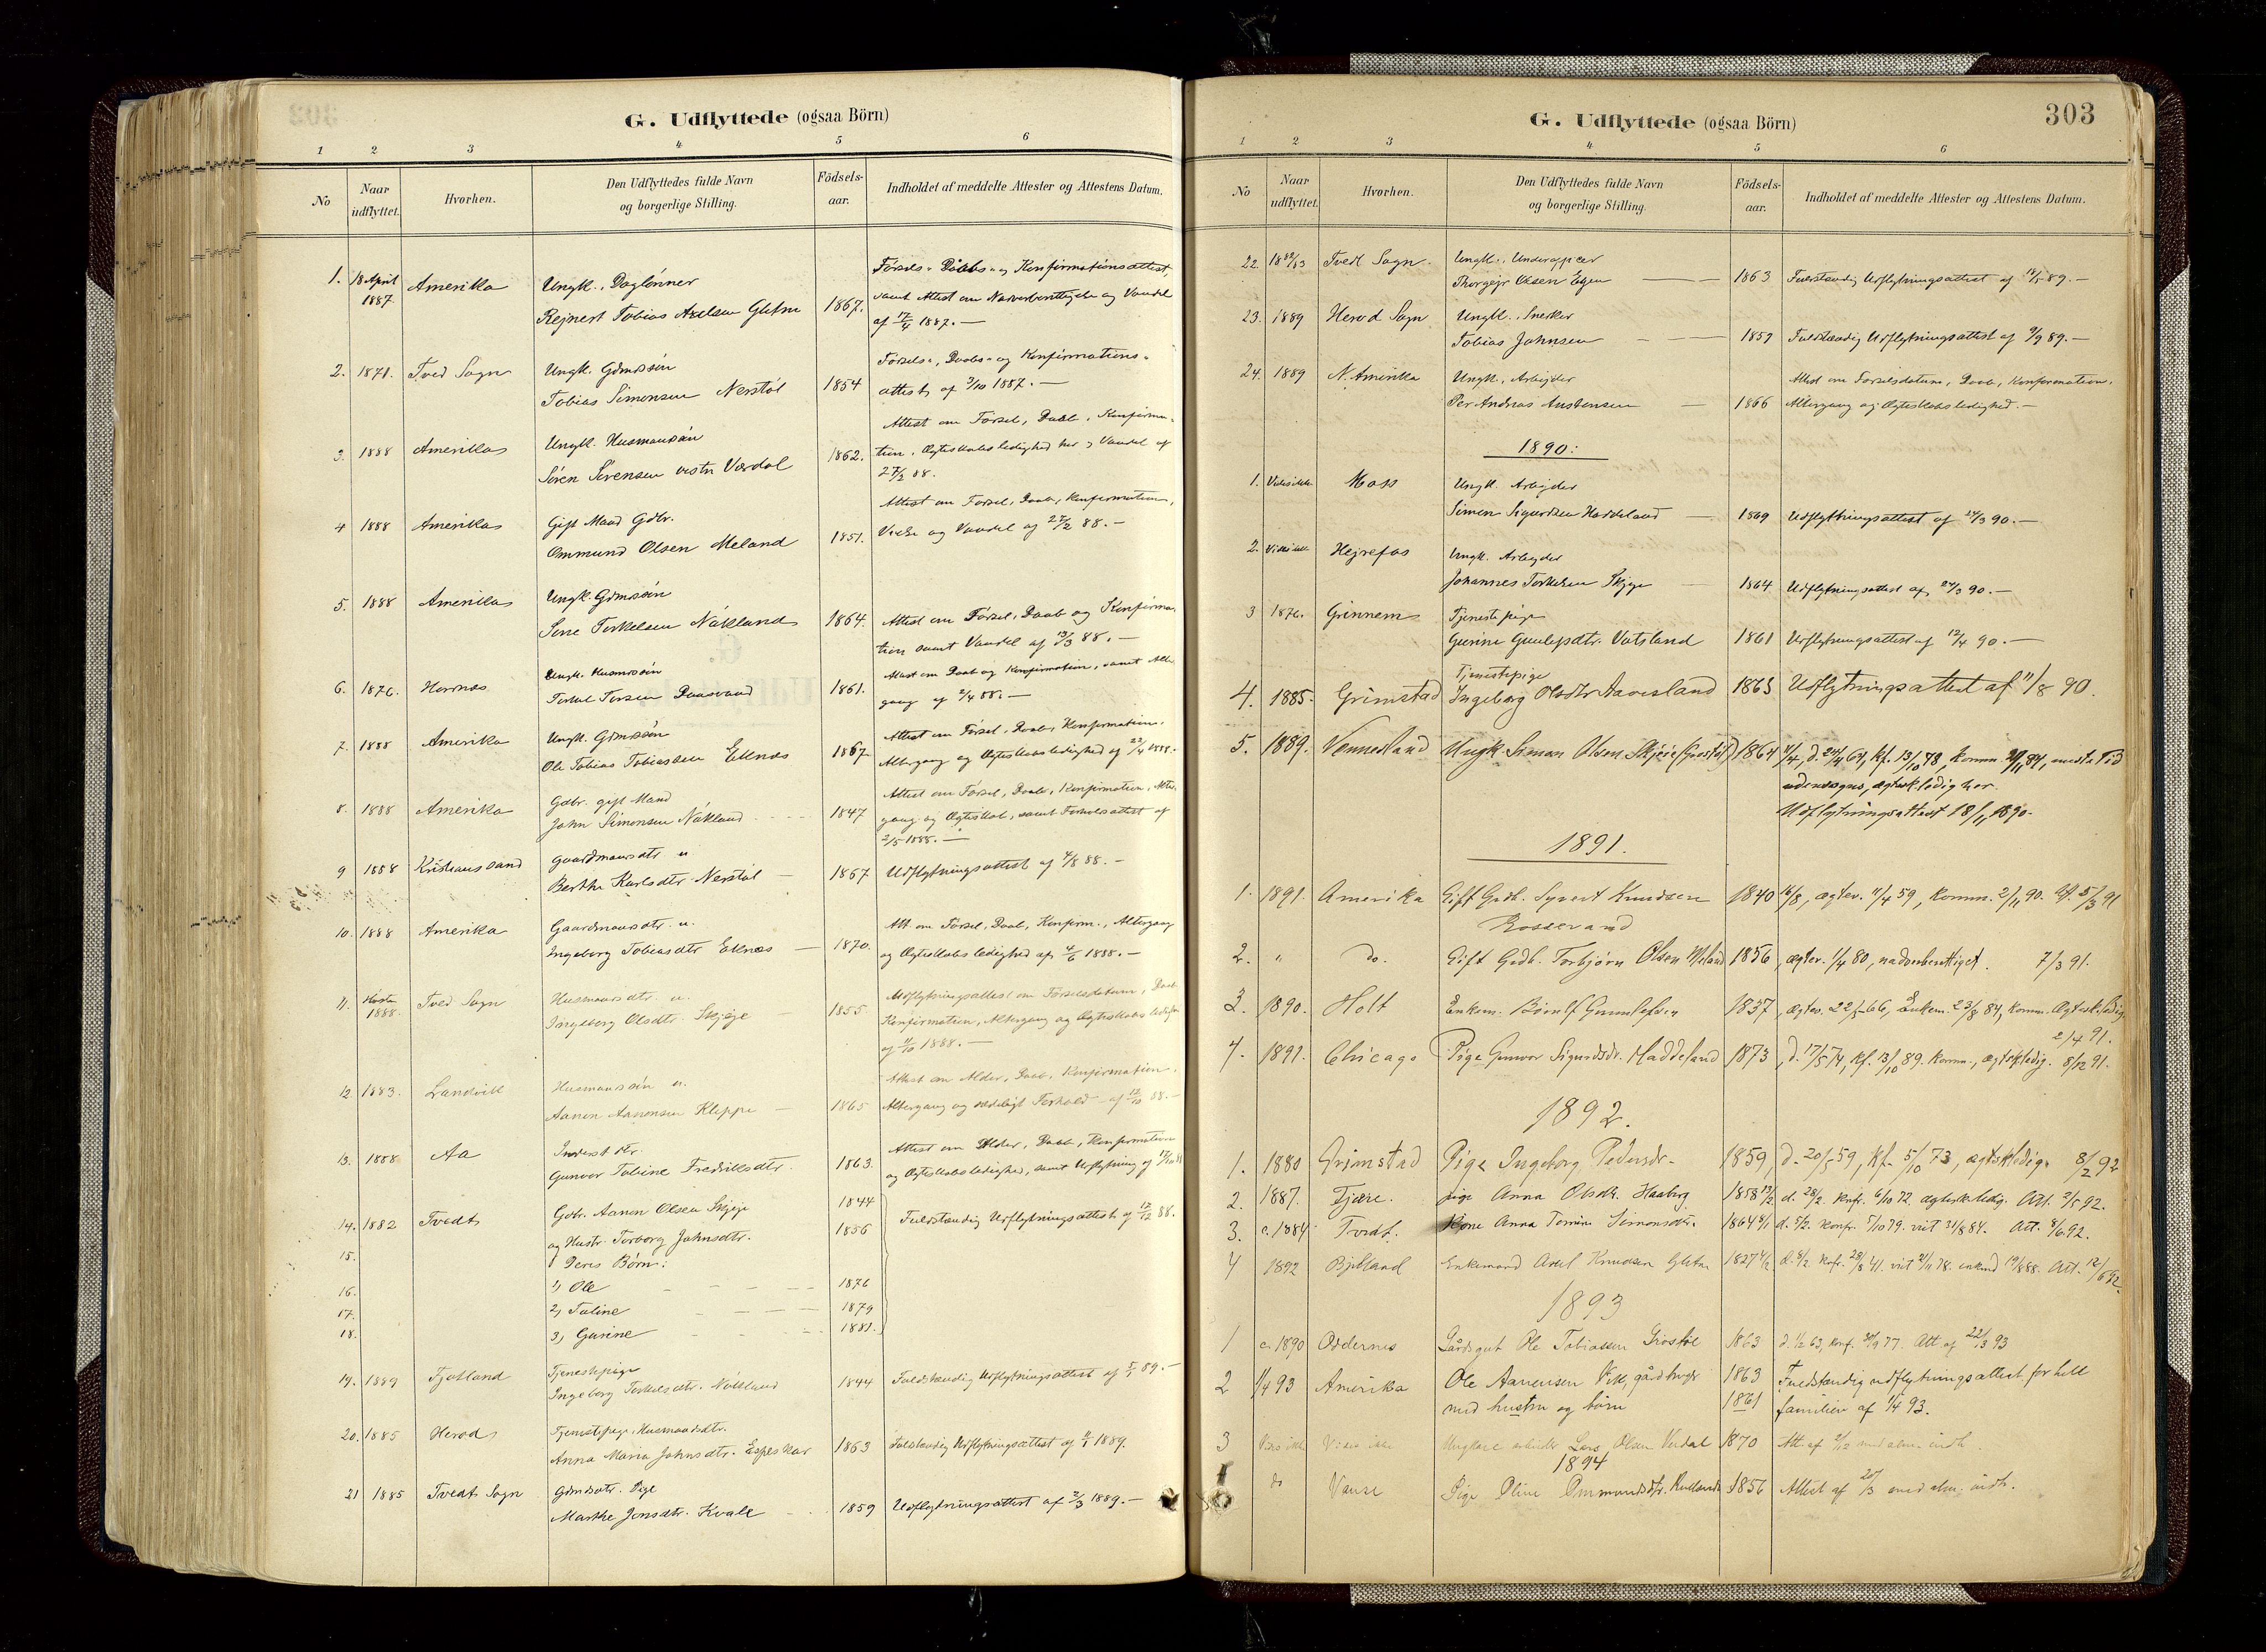 G. Udflyttede (ogsaa Börn)
1 2 3 4 5 6
No
Naar udflyttet.
Hvorhen.
Den Udflyttedes fulde Navn og borgerlige Stilling.
Födsels-aar.
Indholdet af meddelte Attester og Attestens Datum.
1. 18 April 1887 Amerika Ungk., Daglønner
Rejnert Tobias Axelsen Gletne 1867.
Fødsels- Daabs- og Konfirmationsattest,
samt Attest om og Vandel
af 17/4 1887. —
2. 1871. Tved Sogn Ungk. Gdmssøn
Tobias Simonsen Nerstøl 1854
Fødsels-, Daabs- og Konfirmations-
attest af 3/10 1887. —
3. 1888 Amerika Ungk. Husmandssøn
Søren Sørensen Verdal 1862.
Attest om Fødsel, Daab, Konfirma-
tion, Ægteskabsledighed her og Vandel af
27/2 88.
4 1888 Amerika Gift Mand Gdbr.
Ommund Olsen Meland 1851.
Attest om Fødsel, Daab, Konfirmation,
Vielse og Vandel af 27/2 88. —
5. 1888 Amerika Ungk. Gdmssøn
Terkelsen Nökland 1864.
Attest om Fødsel, Daab og Konfirma-
tion samt Vandel af 13/3 88. —
6. 1876. Ungk. Husmssøn
Terkel Torsen 1861.
Attest om Daab og Konfirmation, samt Alter-
gang af 2/4 88. —
7. 1888 Amerika Ungk. Gdmssøn
Ole Tobias Tobiassen Eknes 1867
Attest om Fødsel, Daab, Konfirmation,
Altergang og Ægteskabsledighed af 22/4 1888.
8. 1888 Amerika Gdbr. gift Mand
John Simonsen Nökland 1847
Attest om Fødsel, Daab, Konfirmation, Alter-
gang og Ægteskab, samt Forholdsattest af
2/5 1888. —
9 1888 Kristianssand Gaardmandsdtr. u
Berthe Karlsdtr. Nerstøl 1867
Udflytningsattest af 4/5 88. —
10. 1888 Amerika Gaardmandsdtr. u.
Ingeborg Tobiasdtr. Eknes 1870.
Att. om Fødsel, Daab, Konfirm., Altergang
og Ægteskabsledighed af 4/6 1888. —
11. Høsten 1888. Tved Sogn Husmandsdtr. u.
Ingeborg Olsdtr. Skjeje 1855.
Udflytningsattest om Fødselsdatum, Daab,
Konfirmation, Altergang og Ægteskabsledighed
af 4/10 1888. —
12. 1883. Landvik Husmandssøn u.
Aanen Aanensen Kleppe 1865
Attest om Alder, Daab, Konfirmation,
Altergang og sædeligt Forhold af 88. —
13. 1888 Aa
Gunvor Tobine Fredriksdtr. 1863.
Attest om Alder, Daab, Konfirmation
og Ægteskabsledighed, samt Udflytning af
14. 1882 Tvedt Gdbr. Aanen Olsen Skjeje 1844
og Hustr. Torborg Johnsdtr. 1856
Fuldstændig Udflytningsattest af 13/12 88.
15. Deres Børn:
16. 1, Ole 1876
17. 2, Taline 1879
18. 3, Gurine 1881.
19. 1889 Fjotland Tjenestepige
Ingeborg Terkelsdtr. Nökland 1844
Fuldstændig Udflytningsattest af 5/1 89. —
20. 1885 Herad Tjenestepige, Husmandsdtr.
Anna Maria Johnsdtr. Espeskar 1863
Fuldstændig Udflytningsattest af 1889.
21 1885 Tvedt Sogn Gdmdsdtr. Pige
Marthe Jensdtr. Kvale 1859
Udflytningsattest af 2/3 1889. —
303
G. Udflyttede (ogsaa Börn)
1 2 3 4 5 6
No
Naar udflyttet.
Hvorhen.
Den Udflyttedes fulde Navn og borgerlige Stilling.
Födsels-aar.
Indholdet af meddelte Attester og Attestens Datum.
22. Tvedt Sogn. Ungk., Underofficer
Thorgeir Olsen 1863
Fuldstændig Udflytningsattest af 89. —
23. 1889 Herad Sogn Ungk. Snedker
Tobias Johnsen 1859
Fuldstændig Udflytningsattest af 9/9 89. —
24. 1889 N. Amerika Ungk., Arbejder
Per Andreas Austensen 1866
Attest om Fødselsdatum, Daab, Konfirmation,
Altergang og Ægteskabsledighed. —
1890:
1. Vides ikke Moss Ungk. Arbejder
Simon Sigurdsen Haddeland 1869
Udflytningsattest af 24/3 90. —
2. Vides ikke Ungk. Arbejder
Johannes Terkelsen Skjeje 1864
Udflytningsattest af 24/3 90. —
3 1876. Grinnem Tjenestepige
Gurine Gunlefsdtr. Vatsland 1861
Udflytningsattest af 12/4 90. —
4. 1885. Grimstad Tjenestepige
Ingeborg Olsdtr Aavesland 1863
Udflytningsattest af 11/8 90.
5. 1889. Vennesland Ungk. Simon Olsen Skjeie (Grostøl) 1864
4/4, d. 24/4 64, kf. 13/10 78, komm. 84, meste Tid
udensogns, ægteskledig her.
Udflytningsattest 18/11 1890.
1891.
1. 1891. Amerika Gift Gdb. Syvert Knudsen 1840
Rossevand
16/8, ægtev. 11/4 59, komm. 2/11 90. Uf. 5/3 91
2. " do. Gift Gdb. Torbjørn Olsen Meland 1856
, ægtev. 1/4 80, nadverberettiget. 7/3 91.
3. 1890. Holt Enkem. Gunlefsen 1837
, ægtev. 22/5 66, Enkem. 23/8 84, komm. Ægteskledig
2/4 91.
4. 1891. Chicago Pige Gunvor Sigurdsdr. Haddeland 1873
, d. 17/5 74, kf. 13/10 89. komm., ægtskledig. 8/12 91.
1892.
1. 1880 Grimstad Pige Ingeborg Pedersdr. 1859
, d. 20/5 59, kf. 5/10 73, ægtskledig. 8/2 92
2. 1887. Fjære. pige Anna Olsdtr. Haaberg 1858 13/2
d. 28/2 konfr. 6/10 72 ægteskledig. Att. 2/5 92.
3. c. 1884 Tvedt. Kone Anna Tomine Simonsdtr. 1864
konfr. 5/10 79. viet 31/8 84. Att. 8/6 92.
4 1892 Bjelland Enkemand Axel Knudsen Gletne 1827
konfr. 29/8 41. viet 78. enkmd 19/8 88. Att. 12/6 92.
1893
1 c. 1890 Oddernes Gårdsgut Ole Tobiassen Grostøl 1863
konf. 30/9 77. Att af 22/3 93
2 1/4 93 Amerika Ole Aanensen Vik, gårdbrugr 1863
med hustru og børn 1861
Fuldstændig udflytningsattest for hele
familien af 1/4 93.
3 Vides ikke Vides ikke Ungkarl arbeider Lars Olsen Verdal 1870
Att af 2/12 med alm. indh.
1894
1 do Vanse Pige Oline Ommundsdtr. 1856
Attest af 20/3 med alm. indh.